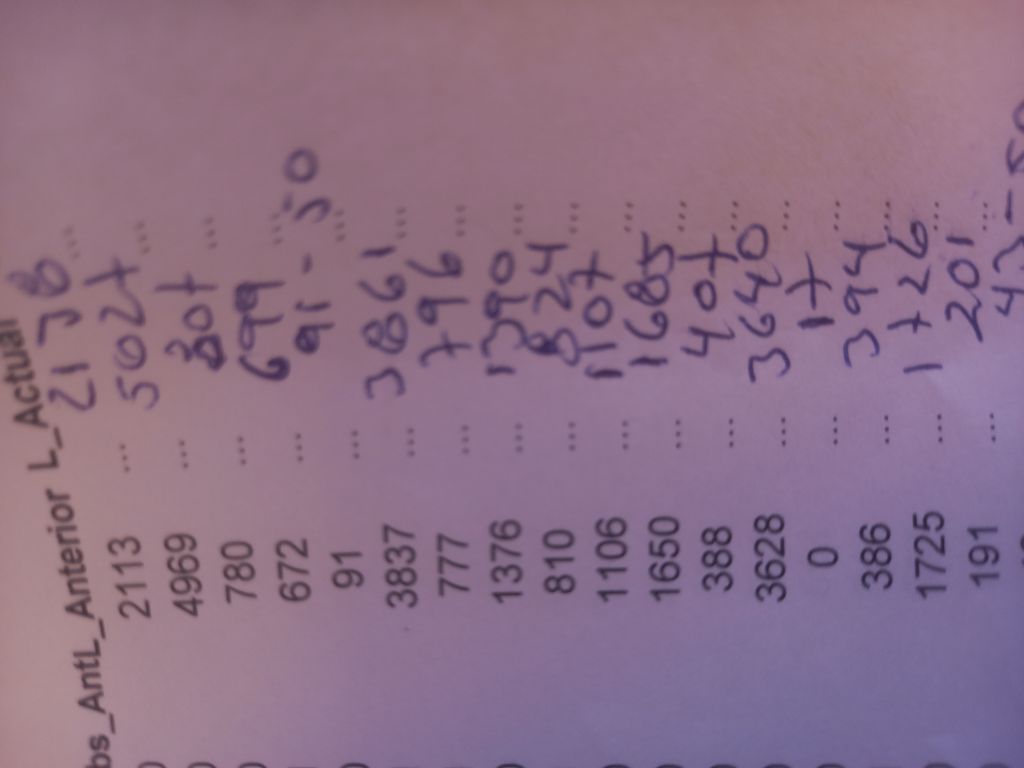 bs_AntL_Anterior L_Actual
2113 ... 2138 ...
4969 ... 5027 ...
780 ... 807 ...
672 ... 699 ...
91 ... 91 - 50 ...
3837 ... 3861 ...
777 ... 796 ...
1376 ... 1390 ...
810 ... 824 ...
1106 ... 1107 ...
1650 ... 1685 ...
388 ... 407 ...
3628 ... 3640 ...
0 ... 17 ...
386 ... 394 ...
1725 ... 1726 ...
191 ... 201 ...